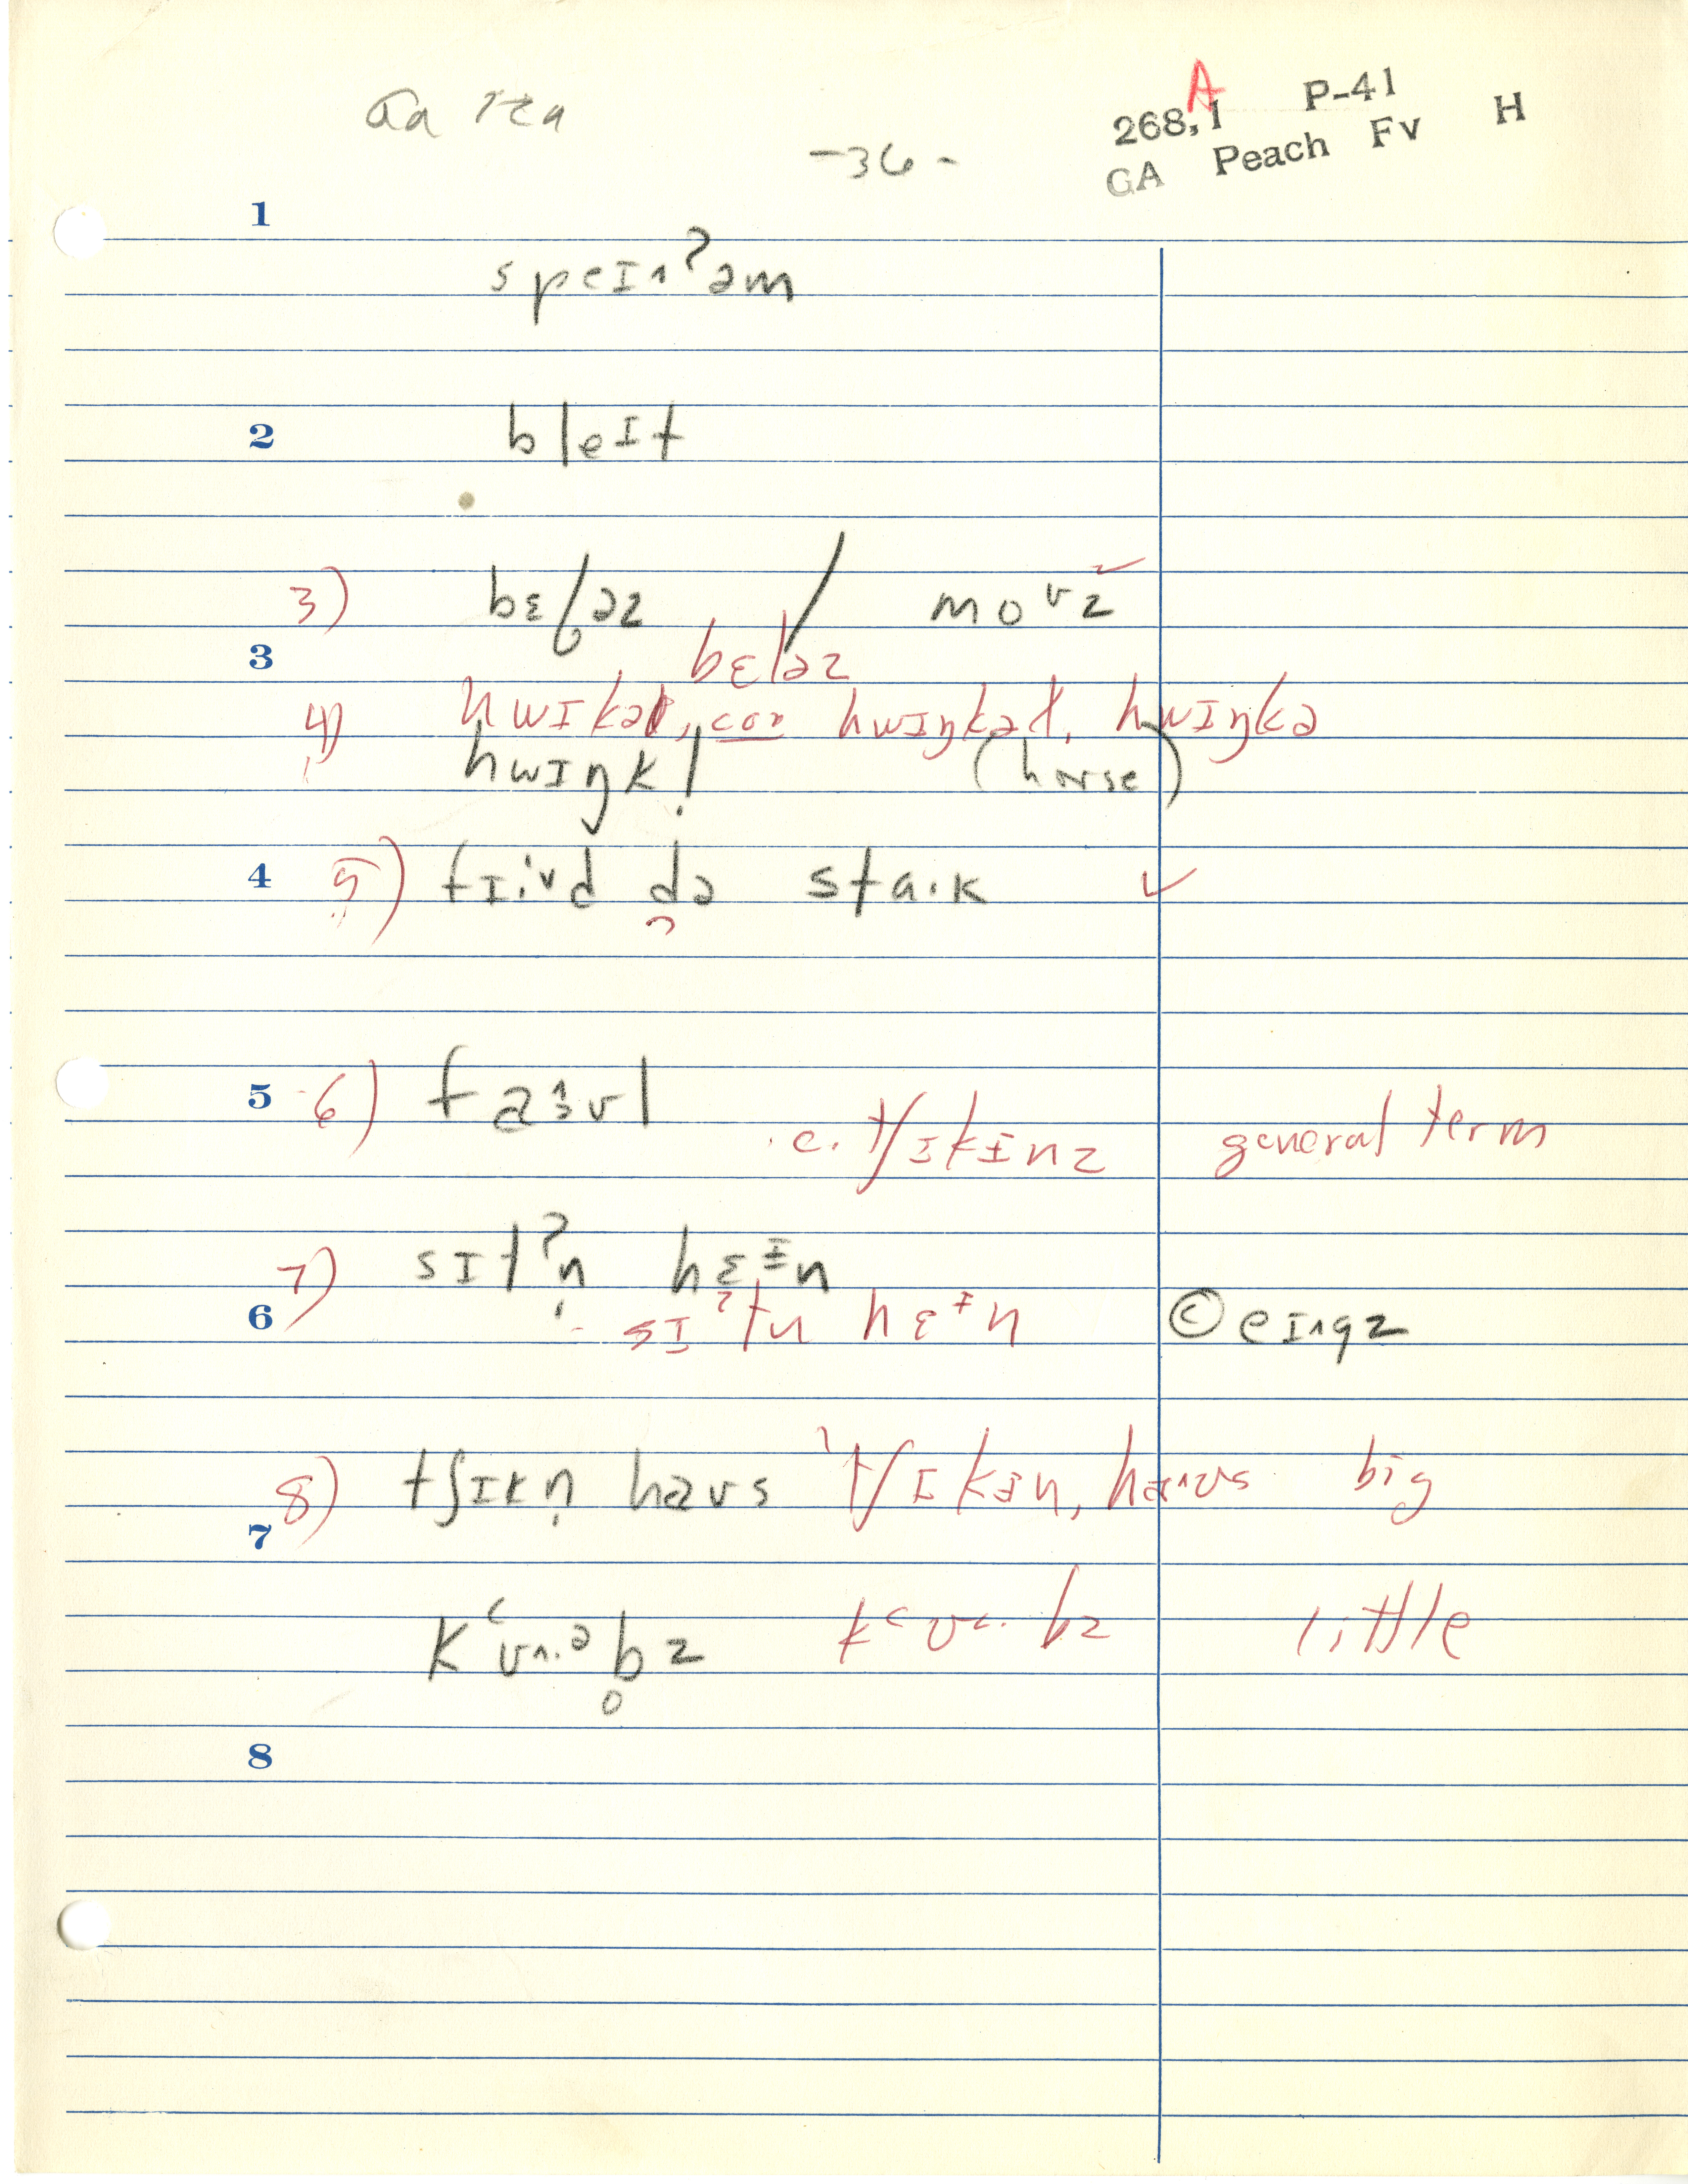 268,1 A P-41
GA Peach Fv H
-36-
1
speɪ˄ʔəm
2
bleɪt
3) bɛɫəz / moᴜz ✓
3
bɛləz
4) hwɪkət, cor hwɪŋkət, hwɪŋkə
hwɪŋk! (horse)
4 5) fɪ·ᵛd də stɑ·k ✓
5 6) faɜʊl c. tʃɪkɪnz general term
7) sɪtʔn̩ hɛᶤn
6 sɪʔtn hɛᶤn © eɪ˄gz
7 8) tʃɪkn̩ haʊs tʃɪkən, ha˄ʊs big
kʻʊ˄·ᵊb̥z kʻʊ˂·bz little
8